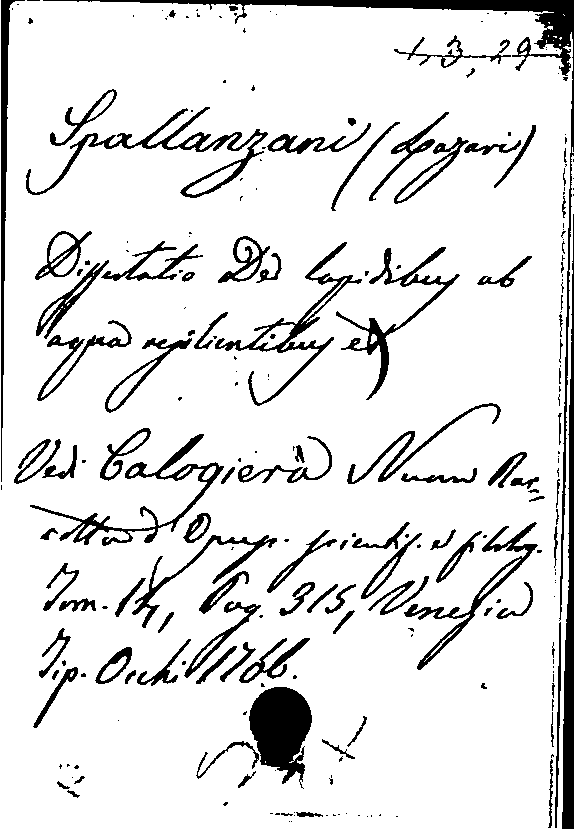 1, 3, 29
Spallanzani (Lazari)
Dissertatio De lapidibus ab
aqua resilientibus et
Vedi Calogierà Nuova Rac=
colta d'Opusc. scientif. e filolog.
Tom. 14, Pag. 315, Venezia
Tip. Occhi 1766.